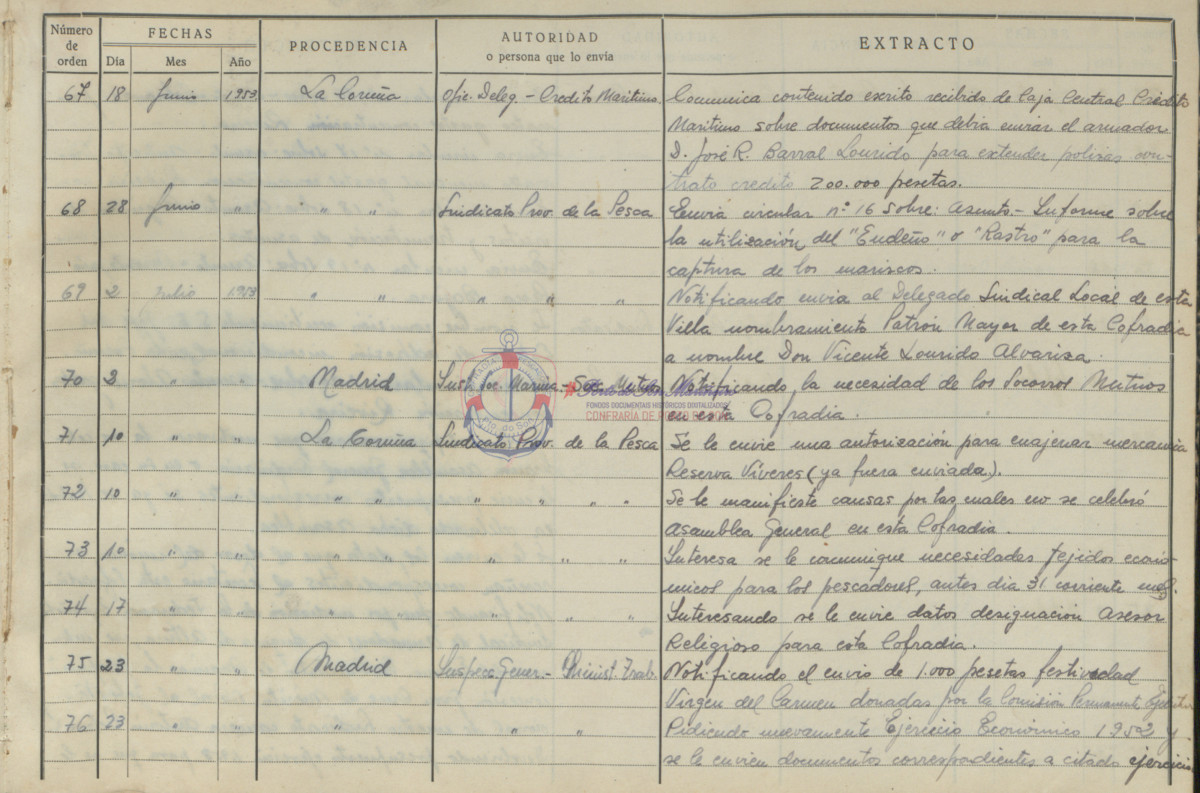 Número de orden FECHAS PROCEDENCIA AUTORIDAD o persona que lo envía EXTRACTO
Día Mes Año
67 18 Junio 1953 La Coruña Ofic. Deleg. - Credito Maritimo. Comunica contenido escrito recibido de Caja Central Crédito
Maritimo sobre documentos que debia enviar el armador
D. José R. Barral Lourido para extender polizas con-
trato credito 200.000 pesetas.
68 28 Junio " " " Sindicato Prov. de la Pesca Envia circular nº 16 sobre: Asunto.- Informe sobre
la utilización del "Endeño" o "Rastro" para la
captura de los mariscos.
69 2 Julio 1953 " " " " " Notificando envia al Delegado Sindical Local de esta
Villa nombramiento Patrón Mayor de esta Cofradia
a nombre Don Vicente Lourido Alvariza.
70 2 " " Madrid Inst. Soc. Marina - Soc. Mutuos Notificando la necesidad de los Socorros Mutuos
en esta Cofradia.
71 10 " " La Coruña Sindicato Prov. de la Pesca Se le envie una autorización para enajenar mercancia
Reserva Víveres (ya fuera enviada).
72 10 " " " " " " " Se le manifieste causas por las cuales no se celebró
Asamblea General en esta Cofradia.
73 10 " " " " " " Interesa se le comunique necesidades tejidos econó-
micos para los pescadores, antes dia 31 corriente mes.
74 17 " " " " " " Interesando se le envie datos designación Asesor
Religioso para esta Cofradia.
75 23 " " Madrid Inspecc. Gener. - Minist. Trab. Notificando el envio de 1.000 pesetas festividad
Virgen del Carmen donadas por la Comisión Permanente
76 23 " " " " " Pidiendo nuevamente Ejercicio Económico 1952 y
se le envien documentos correspondientes a citado ejercicio
FONDOS DOCUMENTAIS HISTÓRICOS DIXITALIZADOS
CONFRARIA DE PORTO DO SON